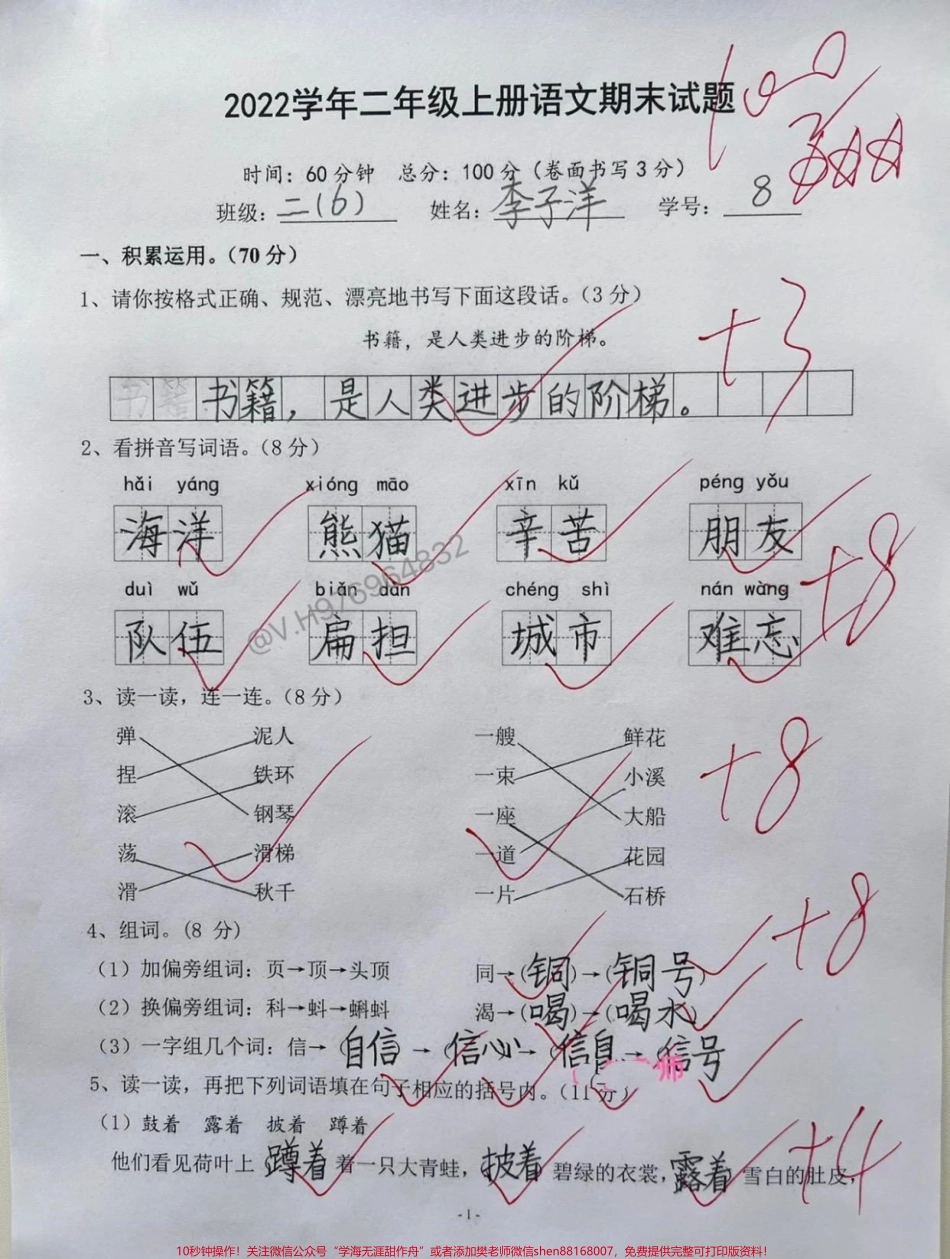 2022学年二年级上册语文期末试题
100
时间：60分钟 总分：100分（卷面书写3分）
班级：二(6) 姓名：李子洋 学号：8
一、积累运用。（70分）
1、请你按格式正确、规范、漂亮地书写下面这段话。（3分）
+3
书籍，是人类进步的阶梯。
书籍 书籍，是人类进步的阶梯。
2、看拼音写词语。（8分）
hǎi yáng xióng māo xīn kǔ péng yǒu
海洋 熊猫 辛苦 朋友
+8
duì wǔ biǎn dan chéng shì nán wàng
队伍 扁担 城市 难忘
@V.H976964832
3、读一读，连一连。（8分）
弹 泥人 一艘 鲜花
捏 铁环 一束 小溪
+8
滚 钢琴 一座 大船
荡 滑梯 一道 花园
滑 秋千 一片 石桥
4、组词。(8 分)
+8
（1）加偏旁组词：页→顶→头顶 同→(铜)→(铜号)
（2）换偏旁组词：科→蚪→蝌蚪 渴→(喝)→(喝水)
（3）一字组几个词：信→（自信）→（信心）→（信自→（信号
师
5、读一读，再把下列词语填在句子相应的括号内。（11分）
（1）鼓着 露着 披着 蹲着
+4
他们看见荷叶上（蹲着 着一只大青蛙，（披着 碧绿的衣裳，露着 雪白的肚皮，
-1-
10秒钟操作！关注微信公众号“学海无涯甜作舟”或者添加樊老师微信shen88168007，免费提供完整可打印版资料！